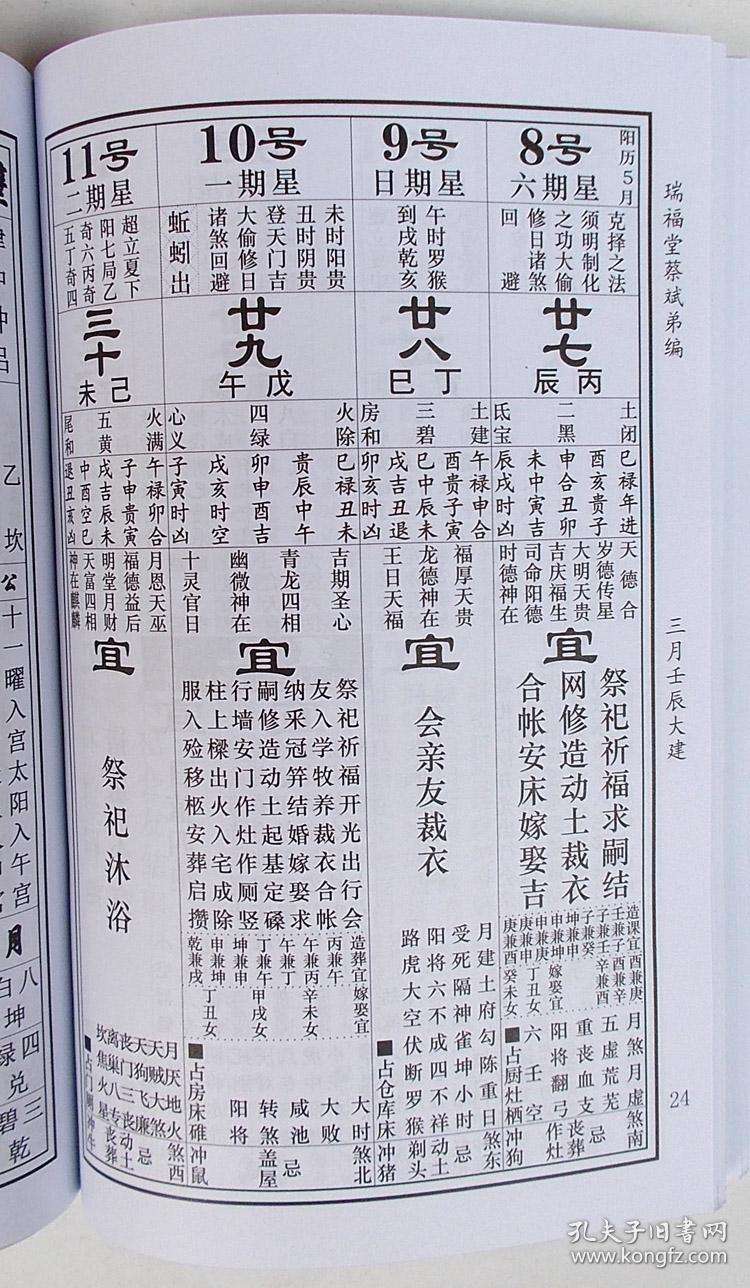 瑞福堂蔡斌弟编
三月壬辰大建
24
阳历5月
8号
星期六
克择之法
须明制化
之功大偷
修日诸煞
回避
廿七
丙辰
土闭
二黑
氐宝
巳禄年进
酉亥贵子
申合丑卯
未中寅吉
辰戌时凶
天德合
岁德传星
大明天贵
吉庆福生
司命阳德
时德神在
宜
祭祀祈福求嗣结
网修造动土裁衣
合帐安床嫁娶吉
造课宜酉兼庚
壬兼子酉兼辛
子兼壬辛兼酉
子兼癸
坤兼申
申兼坤嫁娶宜
申兼庚
庚兼申丁丑女
庚兼酉癸未女
月煞月虚煞南
五虚荒芜
重丧血支忌
阳将翻弓丧葬
作灶
六壬空
■占厨灶栖冲狗
9号
星期日
午时罗猴
到戌乾亥
廿八
丁巳
土建
三碧
房和
午禄申合
酉贵子寅
巳中辰未
戌吉丑退
卯亥时凶
福厚天贵
龙德神在
王日天福
宜
会亲友裁衣
月建土府勾陈重日煞东
受死隔神雀坤小时忌
阳将六不成四不祥动土
路虎大空伏断罗猴剃头
■占仓库床冲猪
10号
星期一
未时阳贵
丑时阴贵
登天门吉
大偷修日
诸煞回避
蚯蚓出
廿九
戊午
火除
四绿
心义
巳禄丑未
贵辰中午
卯申酉吉
戌亥时空
子寅时凶
吉期圣心
青龙四相
幽微神在
十灵官日
宜
祭祀祈福开光出行会
友入学牧养裁衣合帐
纳采冠笄结婚嫁娶求
嗣修造动土起基定磉
行墙安门作灶作厕竖
柱上樑出火入宅成除
服入殓移柩安葬启攒
造葬宜嫁娶宜
丙兼午
午兼丙辛未女
午兼丁
丁兼午甲戌女
坤兼申
申兼坤丁丑女
乾兼戌
大时煞北
大败
咸池忌
转煞盖屋
阳将
■占房床碓冲鼠
11号
星期二
超立夏下
阳七局乙
奇六丙奇
五丁奇四
三十
己未
火满
五黄
尾和
午禄卯合
子申贵寅
戌吉辰未
中酉空巳
退丑亥凶
月恩天巫
福德益后
明堂月财
天富四相
神在麒麟
宜
祭祀沐浴
月厌地火煞西
天贼大煞忌
天狗飞廉动土
丧门三丧
离巢八专丧葬
坎焦火星
■占门厕冲牛
乙
坎
公
十一曜入宫太阳入午宫
月
八
白
坤
四
绿
兑
三
碧
乾
孔夫子旧书网
www.kongfz.com